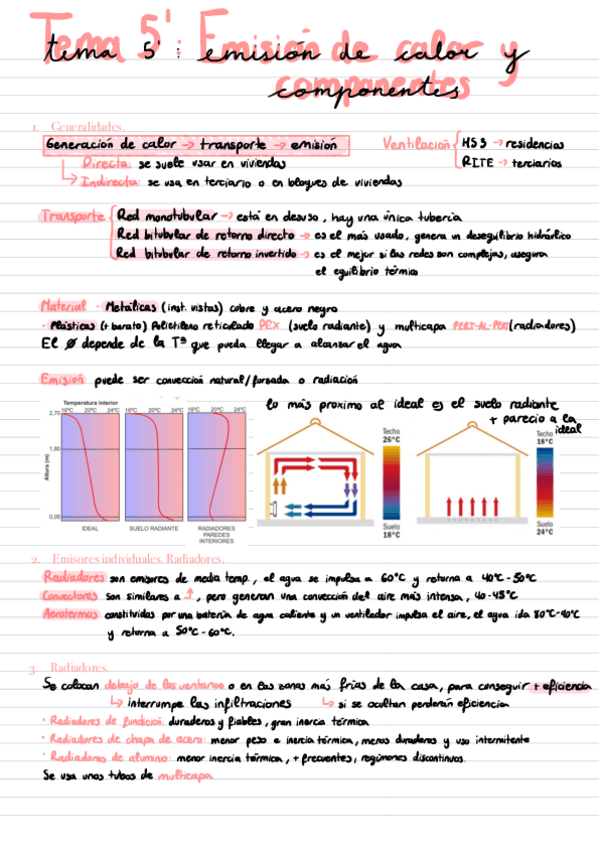 Tema 5': Emisión de calor y
componentes
1. Generalidades.
Generación de calor → transporte → emisión
Ventilación { HS3 → residencias
RITE → terciarios
Directa: se suele usar en viviendas
↳ Indirecta: se usa en terciario o en bloques de viviendas
Transporte { Red monotubular → está en desuso, hay una única tubería
Red bitubular de retorno directo → es el más usado, genera un desequilibrio hidráulico
Red bitubular de retorno invertido → es el mejor si las redes son complejas, asegura
el equilibrio térmico
Material · Metálicas (inst. vistas) cobre y acero negro
· Plásticas (+ barato) Polietileno reticulado PEX (suelo radiante) y multicapa PERT-AL-PERT (radiadores)
El Ø depende de la Tª que pueda llegar a alcanzar el agua
Emisión puede ser convección natural/forzada o radiación
Temperatura interior
16ºC 20ºC 24ºC 16ºC 20ºC 24ºC 16ºC 20ºC 24ºC
2,70
1,80
0,05
Altura (m)
IDEAL
SUELO RADIANTE
RADIADORES
PAREDES
INTERIORES
lo más proximo al ideal es el suelo radiante
+ parecio a la
ideal
Techo
26°C
Suelo
18°C
Techo
18°C
Suelo
24°C
2. Emisores individuales. Radiadores.
Radiadores son emisores de media temp., el agua se impulsa a 60°C y retorna a 40°C-50°C
Convectores son similares a ↑, pero generan una convección del aire más intensa, 40-45°C
Aerotermos constituidos por una batería de agua caliente y un ventilador impulsa el aire, el agua ida 80°C-90°C
y retorna a 50°C-60°C.
3. Radiadores.
Se colocan debajo de las ventanas o en las zonas más frías de la casa, para conseguir + eficiencia
↳ interrumpe las infiltraciones
↳ si se ocultan perderán eficiencia
· Radiadores de fundición: duraderos y fiables, gran inercia térmica
· Radiadores de chapa de acero: menor peso e inercia térmica, menos duraderos y uso intermitente
· Radiadores de aluminio: menor inercia térmica, + frecuentes, regímenes discontinuos.
Se usa unos tubos de multicapa